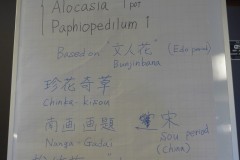 Alocasia 1 pot
Paphiopedilum 1
Based on "文人花" (Edo period)
Bunjinbana
珍花奇草
Chinka-kisou
南画画題 宋
Nanga-Gadai Sou period
(China)